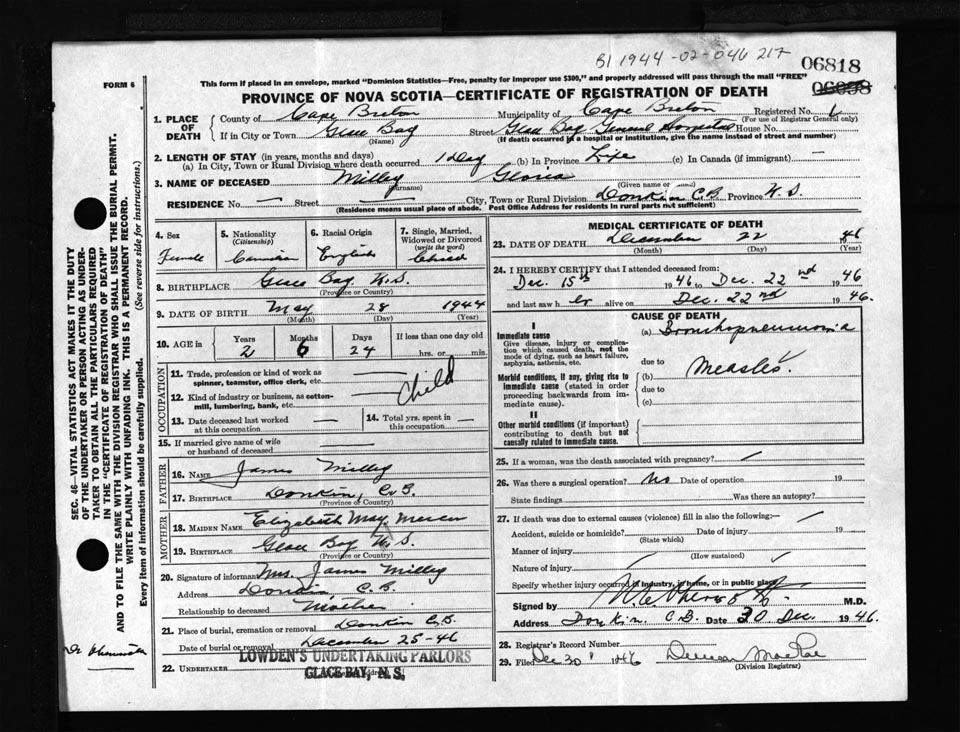 B1 1944-02-046 217
06818
FORM 6
This form if placed in an envelope, marked "Dominion Statistics—Free, penalty for improper use $300," and properly addressed will pass through the mail "FREE"
PROVINCE OF NOVA SCOTIA—CERTIFICATE OF REGISTRATION OF DEATH
1. PLACE OF DEATH
County of Cape Breton Municipality of Cape Breton Registered No.
(For use of Registrar General only)
If in City or Town Glace Bay Street Glace Bay General Hospital House No.
(Name) (If death occurred in a hospital or institution, give the name instead of street and number)
2. LENGTH OF STAY (in years, months and days)
(a) In City, Town or Rural Division where death occurred 1 Day (b) In Province Life (c) In Canada (if immigrant) —
3. NAME OF DECEASED Milley Gloria
(Surname) (Given name or
RESIDENCE No. — Street — City, Town or Rural Division Donkin C.B. Province N.S.
(Residence means usual place of abode. Post Office Address for residents in rural parts not sufficient)
4. Sex Female
5. Nationality (Citizenship) Canadian
6. Racial Origin English
7. Single, Married, Widowed or Divorced (write the word) Child
8. BIRTHPLACE Glace Bay N.S.
(Province or Country)
9. DATE OF BIRTH May 28 1944
(Month) (Day) (Year)
10. AGE in Years Months Days If less than one day old
2 6 24 hrs. or min.
OCCUPATION
11. Trade, profession or kind of work as spinner, teamster, office clerk, etc. —
12. Kind of industry or business, as cotton-mill, lumbering, bank, etc. — Child
13. Date deceased last worked at this occupation —
14. Total yrs. spent in this occupation —
15. If married give name of wife or husband of deceased —
FATHER
16. NAME James Milley
17. BIRTHPLACE Donkin, C.B.
(Province or Country)
MOTHER
18. MAIDEN NAME Elizabeth May Mercer
19. BIRTHPLACE Glace Bay N.S.
(Province or Country)
20. Signature of informant Mrs. James Milley
Address Donkin, C.B.
Relationship to deceased Mother
21. Place of burial, cremation or removal Donkin C.B.
Date of burial or removal December 25-46
22. UNDERTAKER LOWDEN'S UNDERTAKING PARLORS
GLACE BAY, N. S.
MEDICAL CERTIFICATE OF DEATH
23. DATE OF DEATH December 22 46
(Month) (Day)
24. I HEREBY CERTIFY that I attended deceased from:
Dec. 15th 1946 to Dec. 22nd 1946
and last saw her alive on Dec. 22nd 1946.
CAUSE OF DEATH
I
Immediate cause (a) Bronchopneumonia
Give disease, injury or complication which caused death, not the mode of dying, such as heart failure, asphyxia, asthenia, etc.
due to
Morbid conditions, if any, giving rise to immediate cause (stated in order proceeding backwards from immediate cause). (b) Measles.
due to
(c)
II
Other morbid conditions (if important) contributing to death but not causally related to immediate cause.
25. If a woman, was the death associated with pregnancy?
26. Was there a surgical operation? No Date of operation 19
State findings Was there an autopsy?
27. If death was due to external causes (violence) fill in also the following:—
Accident, suicide or homicide? Date of injury 19
(State which)
Manner of injury
(How sustained)
Nature of injury
Specify whether injury occurred in industry, in home, or in public place
Signed by M.D.
Address Donkin C.B. Date 30 Dec. 1946.
28. Registrar's Record Number
29. Filed Dec 30 1946 Duncan MacRae
(Division Registrar)
SEC. 46—VITAL STATISTICS ACT MAKES IT THE DUTY
OF THE UNDERTAKER OR PERSON ACTING AS UNDERTAKER TO OBTAIN ALL THE PARTICULARS REQUIRED
IN THE "CERTIFICATE OF REGISTRATION OF DEATH"
AND TO FILE THE SAME WITH THE DIVISION REGISTRAR WHO SHALL ISSUE THE BURIAL PERMIT.
WRITE PLAINLY WITH UNFADING INK. THIS IS A PERMANENT RECORD.
Every item of information should be carefully supplied. (See reverse side for instructions.)